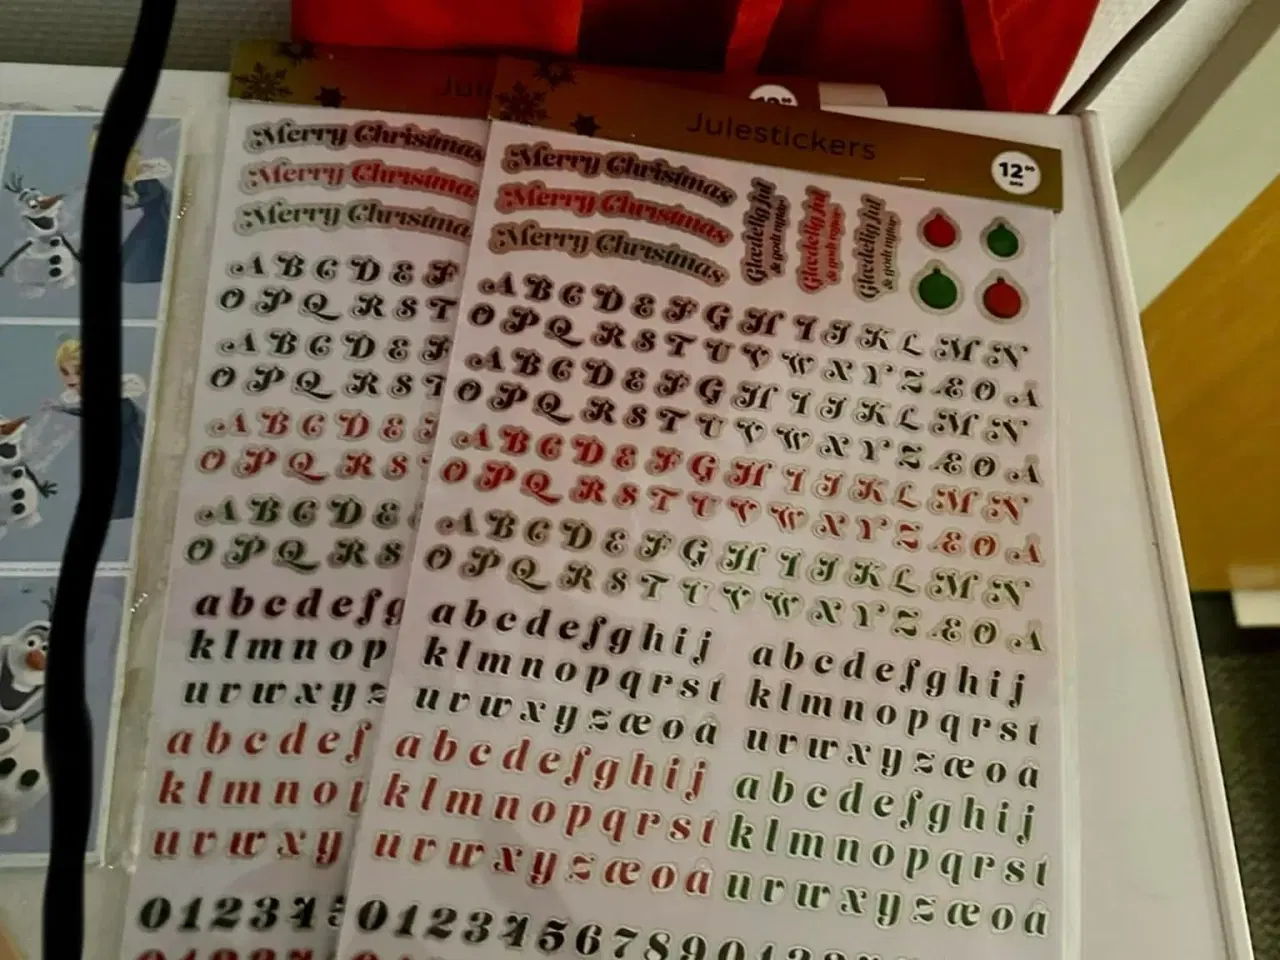 Jul
Merry Christmas
Merry Christma
Merry Christma
A B C D E F
O P Q R S T
A B C D E F
O P Q R S T
A B C D E
O P Q R S
A B C D E
O P Q R S
a b c d e f g
k l m n o p
u v w x y z
a b c d e f
k l m n o
u v w x y
0 1 2 3 4 5
0 1 2 3
Julestickers
12
Merry Christmas
Merry Christmas
Merry Christmas
Glædelig Jul
& godt nytår
Glædelig Jul
& godt nytår
Glædelig Jul
& godt nytår
A B C D E F G H I J K L M N
O P Q R S T U V W X Y Z Æ O Å
A B C D E F G H I J K L M N
O P Q R S T U V W X Y Z Æ O Å
A B C D E F G H I J K L M N
O P Q R S T U V W X Y Z Æ O Å
A B C D E F G H I J K L M N
O P Q R S T U V W X Y Z Æ O Å
a b c d e f g h i j
k l m n o p q r s t
u v w x y z æ o å
a b c d e f g h i j
k l m n o p q r s t
u v w x y z æ o å
a b c d e f g h i j
k l m n o p q r s t
u v w x y z æ o å
a b c d e f g h i j
k l m n o p q r s t
u v w x y z æ o å
0 1 2 3 4 5 6 7 8 9 0 1 2 3